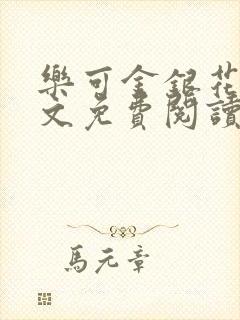 樂可金銀花
文免費閱讀
馬元章